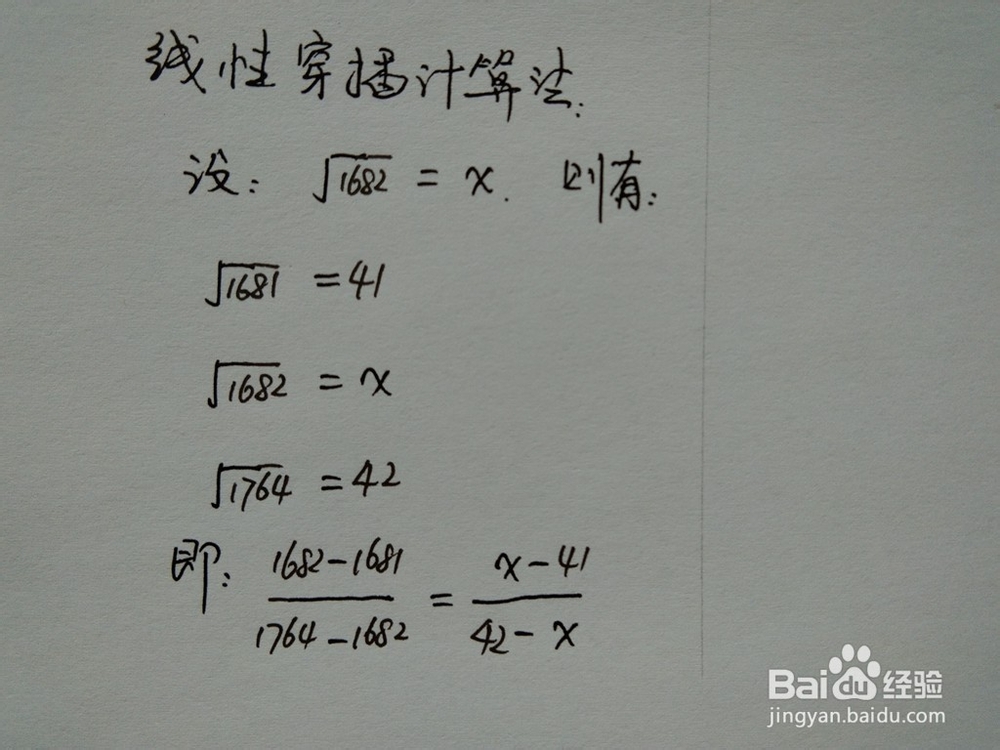 线性穿插计算法:
设: √1682 = x. 则有:
√1681 = 41
√1682 = x
√1764 = 42
即: (1682-1681)/(1764-1682) = (x-41)/(42-x)
Baidu 经验
jingyan.baidu.com